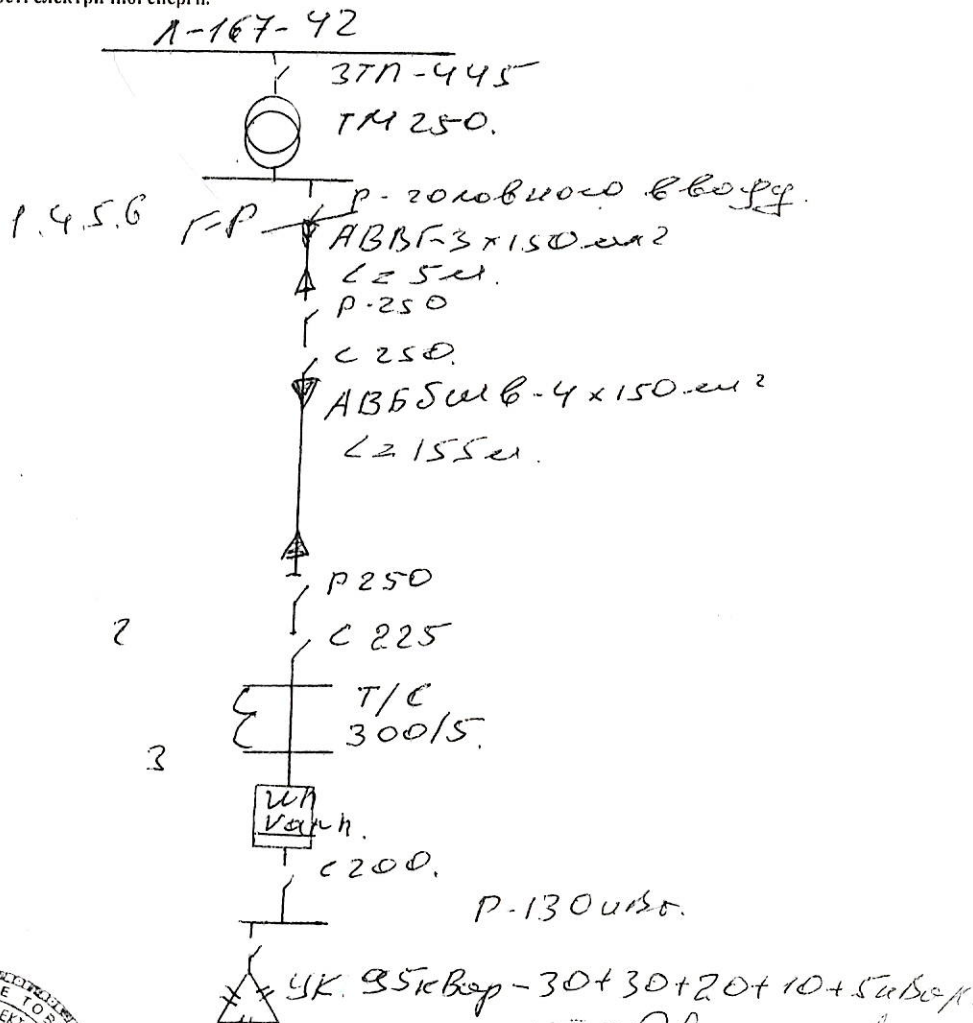 Л-167-42
ЗТП-445
ТМ 250.
Р- головного вводу.
1.4.5.6
Г-Р
АВВГ-3х150 мм²
L=5м.
Р-250
С 250.
АВБбШв-4х150 мм²
L=155м.
Р 250
2
С 225
Т/С
300/5.
3
С200.
Р-130 кВт.
УК. 95 кВар - 30+30+20+10+5 кВар